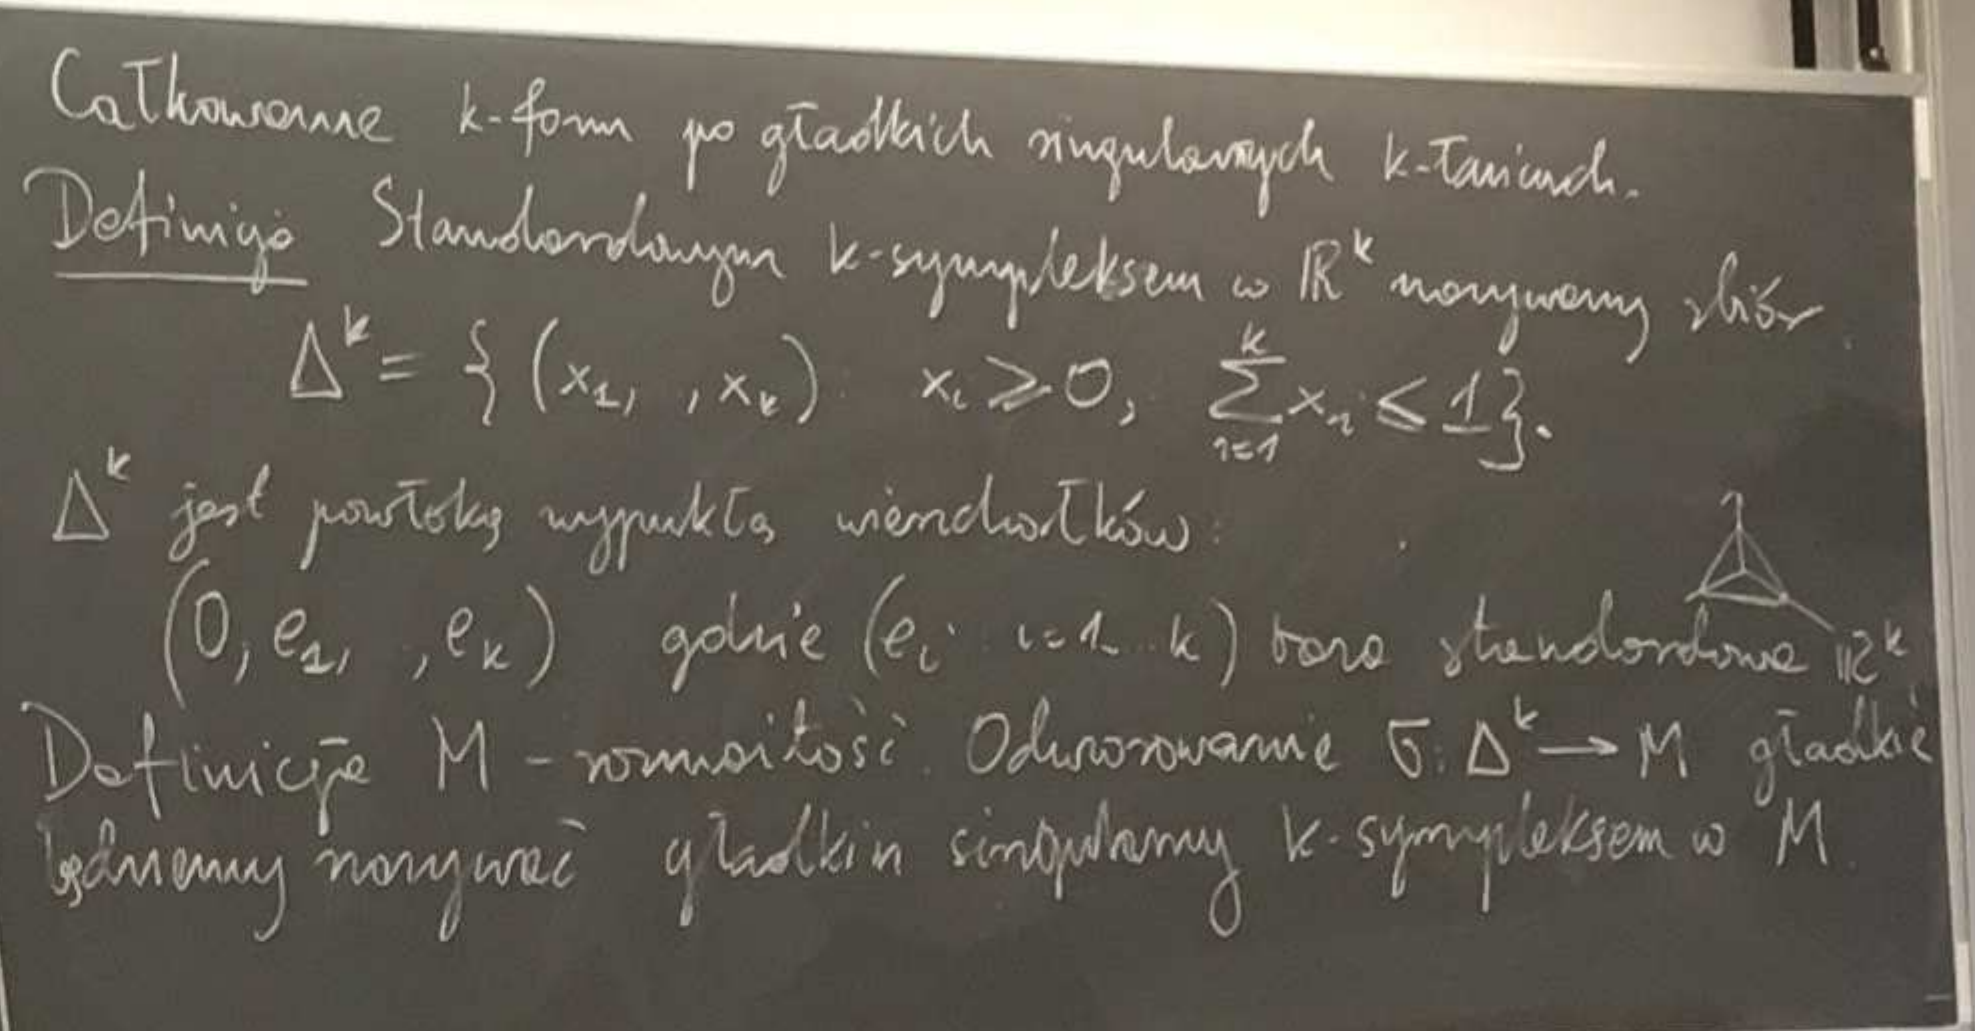 Całkowanie k-form po gładkich singularnych k-łańcuch.
Definicja Standardowym k-sympleksem w ℝ^k nazywamy zbiór
Δ^k = { (x_1, , x_k) : x_i ⩾ 0, ∑_{i=1}^{k} x_i ≤ 1 }.
Δ^k jest powłoką wypukłą wierzchołków:
(0, e_1, , e_k) gdzie (e_i : i=1 .. k) baza standardowa ℝ^k
Definicja M - rozmaitość. Odwzorowanie σ: Δ^k → M gładkie
będziemy nazywać gładkim singularny k-sympleksem w M.